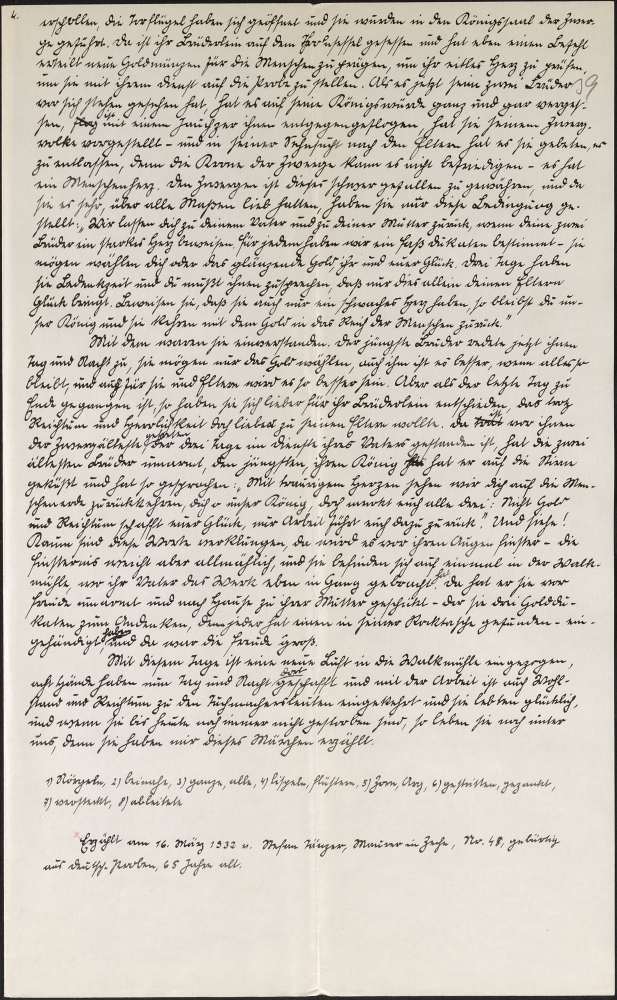 4.
erschollen, die Torflügel haben sich geöffnet und sie wurden in den Königssaal der Zwer-
ge geführt. Da ist ihr Brüderlein auf dem Thronsessel gesessen und hat eben einen Befehl
erteilt neue Goldmünzen für die Menschen zu prägen, um ihr eitles Herz zu prüfen,
um sie mit ihrem Dienst auf die Probe zu stellen. Als es jetzt seine zwei Brüder
39
vor sich stehen gesehen hat, hat es auf seine Königswürde ganz und gar verges-
sen, mit einem Jauchzer ihnen entgegengeflogen, hat sie seinem Zwerg-
volke vorgestellt – und in seiner Sehnsucht nach den Eltern hat es sie gebeten, es
zu entlassen, denn die Krone der Zwerge kann es nicht befriedigen – es hat
ein Menschenherz. Den Zwergen ist dieses schwer gefallen zu gewähren, und da
sie es sehr, über alle Maßen lieb hatten, haben sie nur diese Bedingung ge-
stellt: „Wir lassen dich zu deinem Vater und zu deiner Mutter zurück, wenn deine zwei
Brüder ein starkes Herz beweisen. Für jeden haben wir ein Faß Dukaten bestimmt – sie
mögen wählen dich oder das glänzende Gold, ihr und euer Glück. Drei Tage haben
sie Bedenkzeit und du mußt ihnen zusprechen, daß nur dies allein deinen Eltern
Glück bringt. Beweisen sie, daß sie auch nur ein schwaches Herz haben, so bleibst du un-
ser König und sie kehren mit dem Gold in das Reich der Menschen zurück.“
Mit dem waren sie einverstanden. Der jüngste Bruder redete jetzt ihnen
Tag und Nacht zu, sie mögen nur das Gold wählen, auch ihm ist es besser, wenn alles so
bleibt, und auch für sie und Eltern wird es so besser sein. Aber als der letzte Tag zu
Ende gegangen ist, so haben sie sich lieber für ihr Brüderlein entschieden, das trotz
Reichtum und Herrlichkeit doch lieber zu seinen Eltern wollte. Da ist vor ihnen
der Zwergälteste getreten, der drei Tage im Dienste ihres Vaters gestanden ist, hat die zwei
ältesten Brüder umarmt, den jüngsten, ihren König hat er auf die Stirn
geküßt und hat so gesprochen: „Mit traurigem Herzen sehen wir dich auf die Men-
schenerde zurückkehren, dich o unser König, doch merkt euch alle drei: Nicht Gold
und Reichtum schafft euer Glück, nur Arbeit führt euch dazu zurück.“ Und siehe!
Kaum sind diese Worte verklungen, da wird es vor ihren Augen finster – die
Finsternis weicht aber allmählich, und sie befinden sich auf einmal in der Walk-
mühle wo ihr Vater das Werk eben in Gang gebracht hat. Da hat er sie vor
Freude umarmt und nach Hause zu ihrer Mutter geschickt – der sie drei Golddu-
katen zum Andenken, denn jeder hat einen in seiner Rocktasche gefunden – ein-
gehändigt haben und da war die Freude groß.
Mit diesem Tage ist eine neue Luft in die Walkmühle eingezogen,
acht Hände haben nun Tag und Nacht dort geschafft und mit der Arbeit ist auch Wohl-
stand und Reichtum zu den Tuchmachersleuten eingekehrt und sie lebten glücklich,
und wenn sie bis heute noch immer nicht gestorben sind, so leben sie noch unter
uns, denn sie haben mir dieses Märchen erzählt.
1) Nörgeln, 2) beinahe, 3) ganze, alle, 4) lispeln, flüstern, 5) Zorn, Arg, 6) gestritten, gezankt,
7) versteckt, 8) ableitete
Erzählt am 16. März 1932 v. Stefan Tänzer, Maurer in Zeche, Nr. 48, gebürtig
aus Deutsch-Proben, 65 Jahre alt.